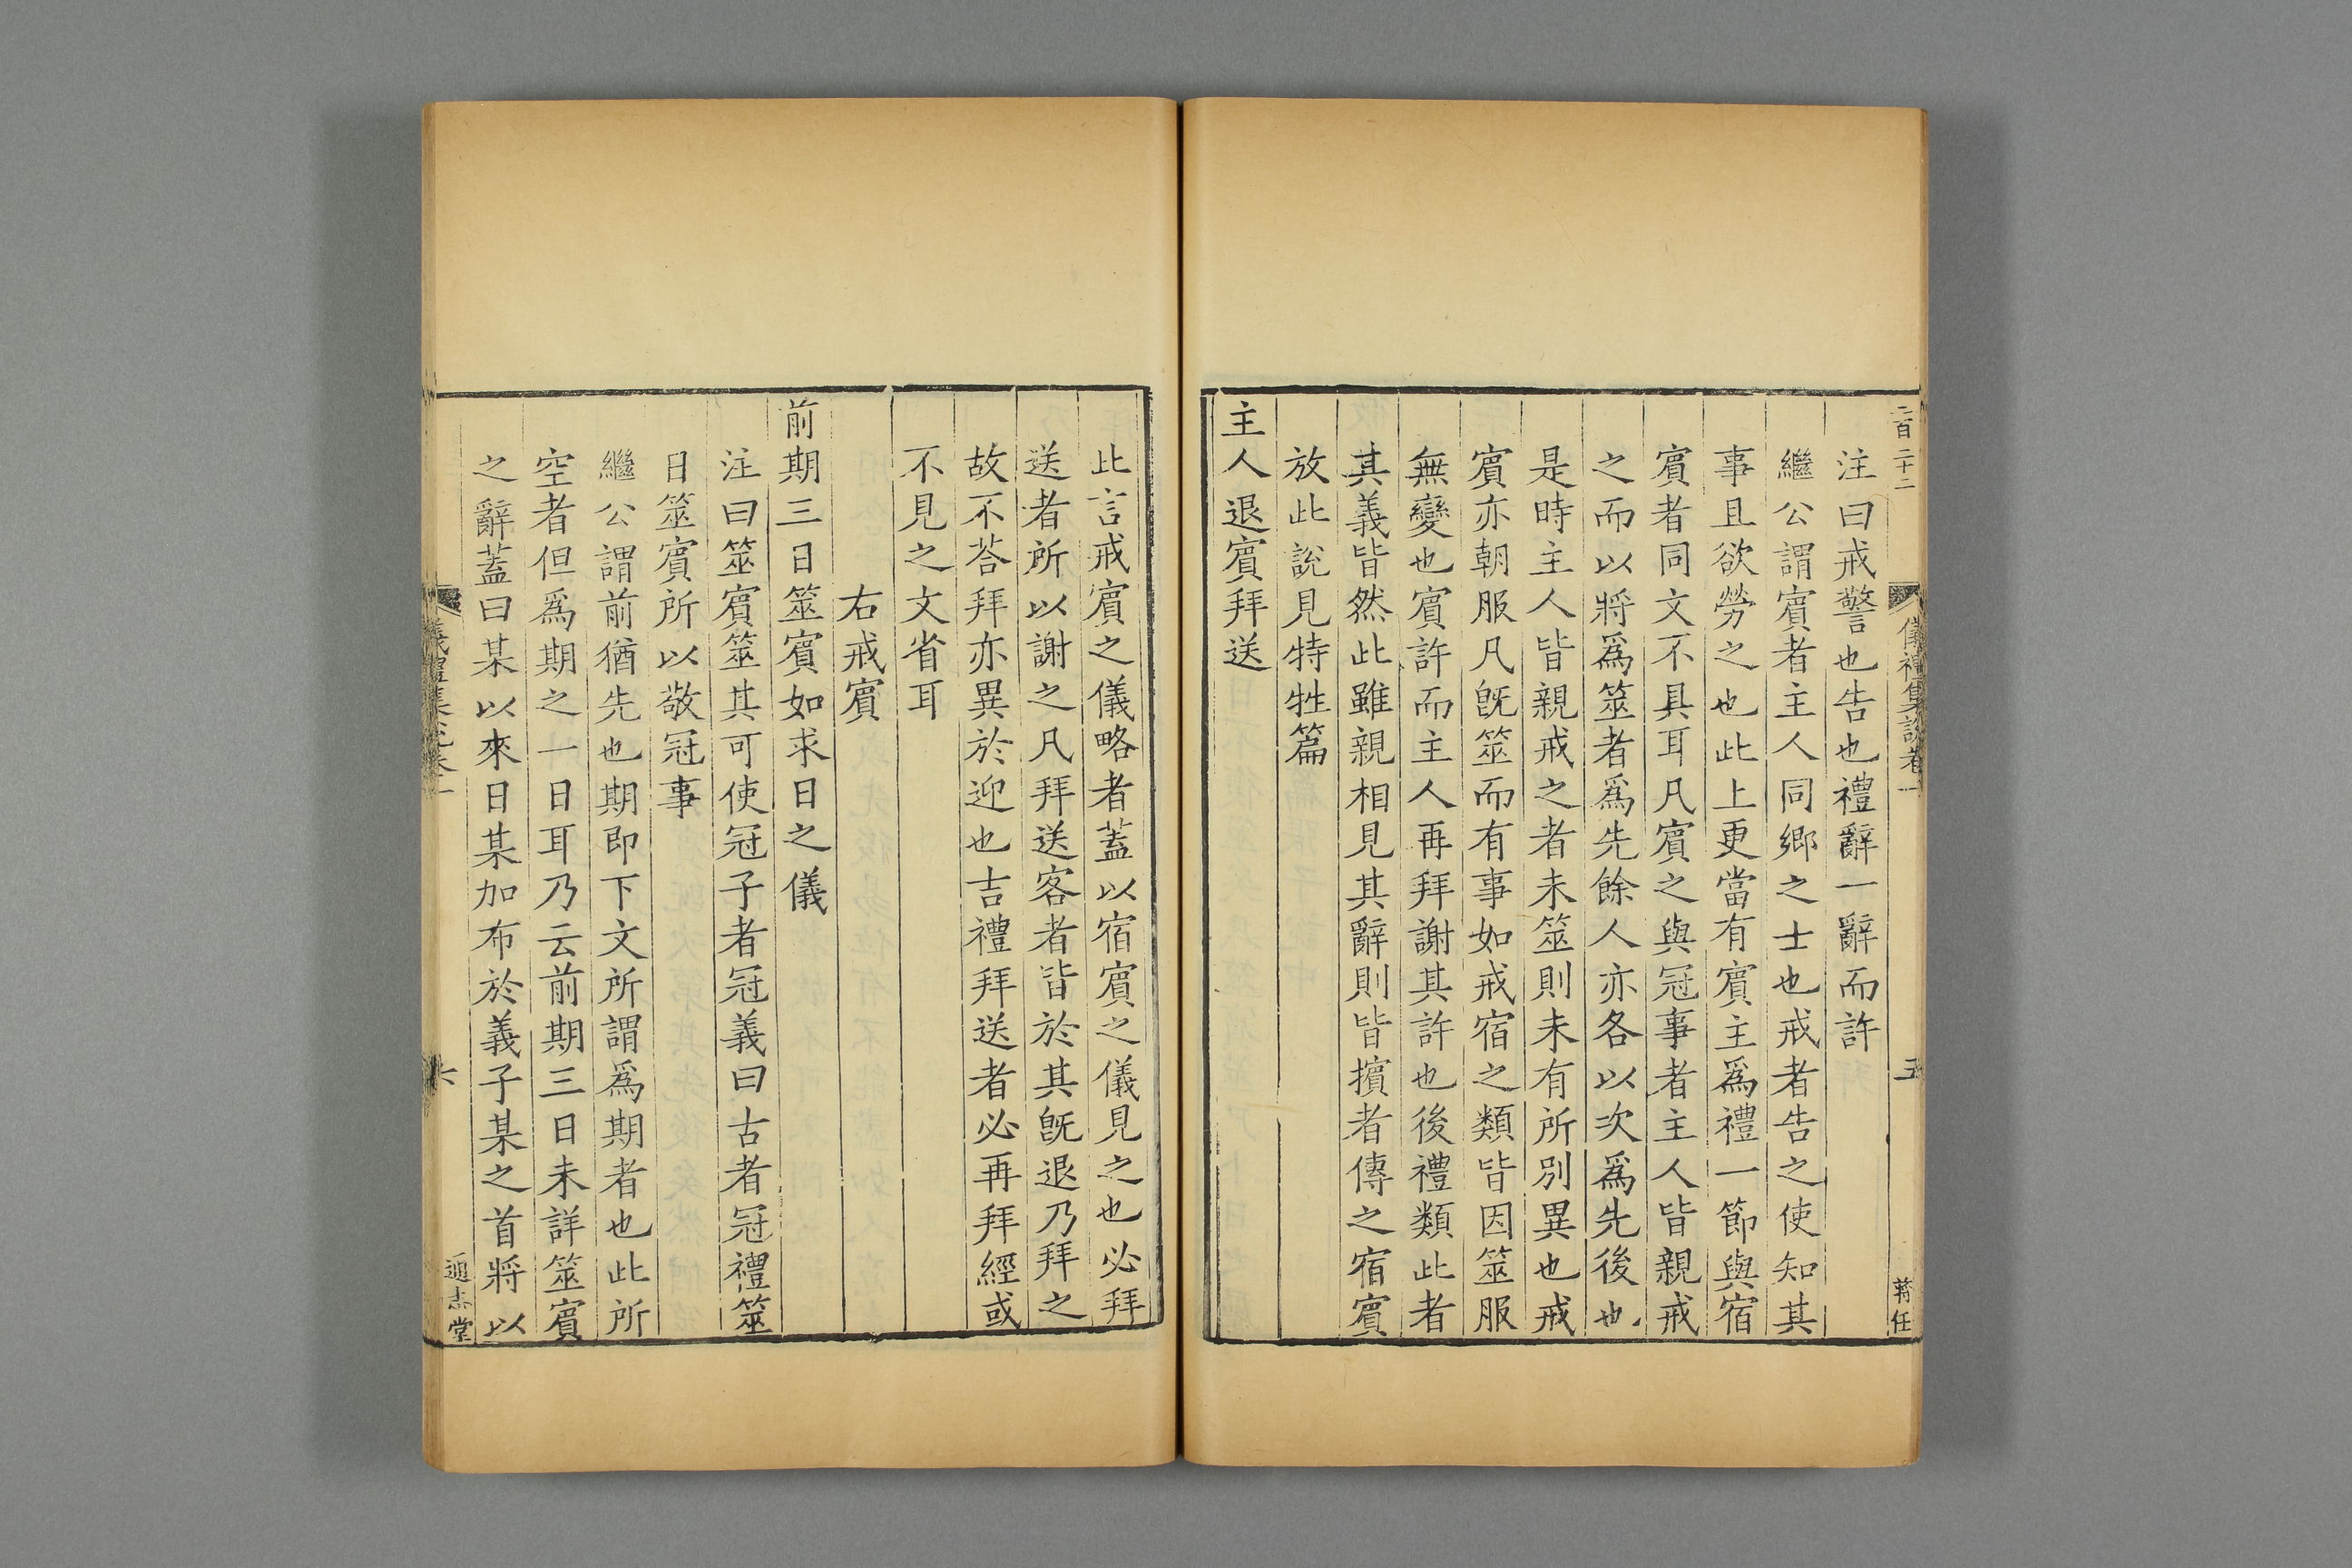 二百二十二
儀禮集說卷一
五
蔣任
注曰戒警也告也禮辭一辭而許
繼公謂賔者主人同鄉之士也戒者告之使知其
事且欲勞之也此上更當有賔主爲禮一節與宿
賔者同文不具耳凡賔之與冠事者主人皆親戒
之而以將爲筮者爲先餘人亦各以次爲先後也
是時主人皆親戒之者未筮則未有所別異也戒
賔亦朝服凡旣筮而有事如戒宿之類皆因筮服
無變也賔許而主人再拜謝其許也後禮類此者
其義皆然此雖親相見其辭則皆擯者傳之宿賔
放此說見特牲篇
主人退賔拜送
此言戒賔之儀略者蓋以宿賔之儀見之也必拜
送者所以謝之凡拜送客者皆於其旣退乃拜之
故不荅拜亦異於迎也吉禮拜送者必再拜經或
不見之文省耳
右戒賔
前期三日筮賔如求日之儀
注曰筮賔筮其可使冠子者冠義曰古者冠禮筮
日筮賔所以敬冠事
繼公謂前猶先也期即下文所謂爲期者也此所
空者但爲期之一日耳乃云前期三日未詳筮賔
之辭蓋曰某以來日某加布於義子某之首將以
儀禮集說卷一
六
通志堂